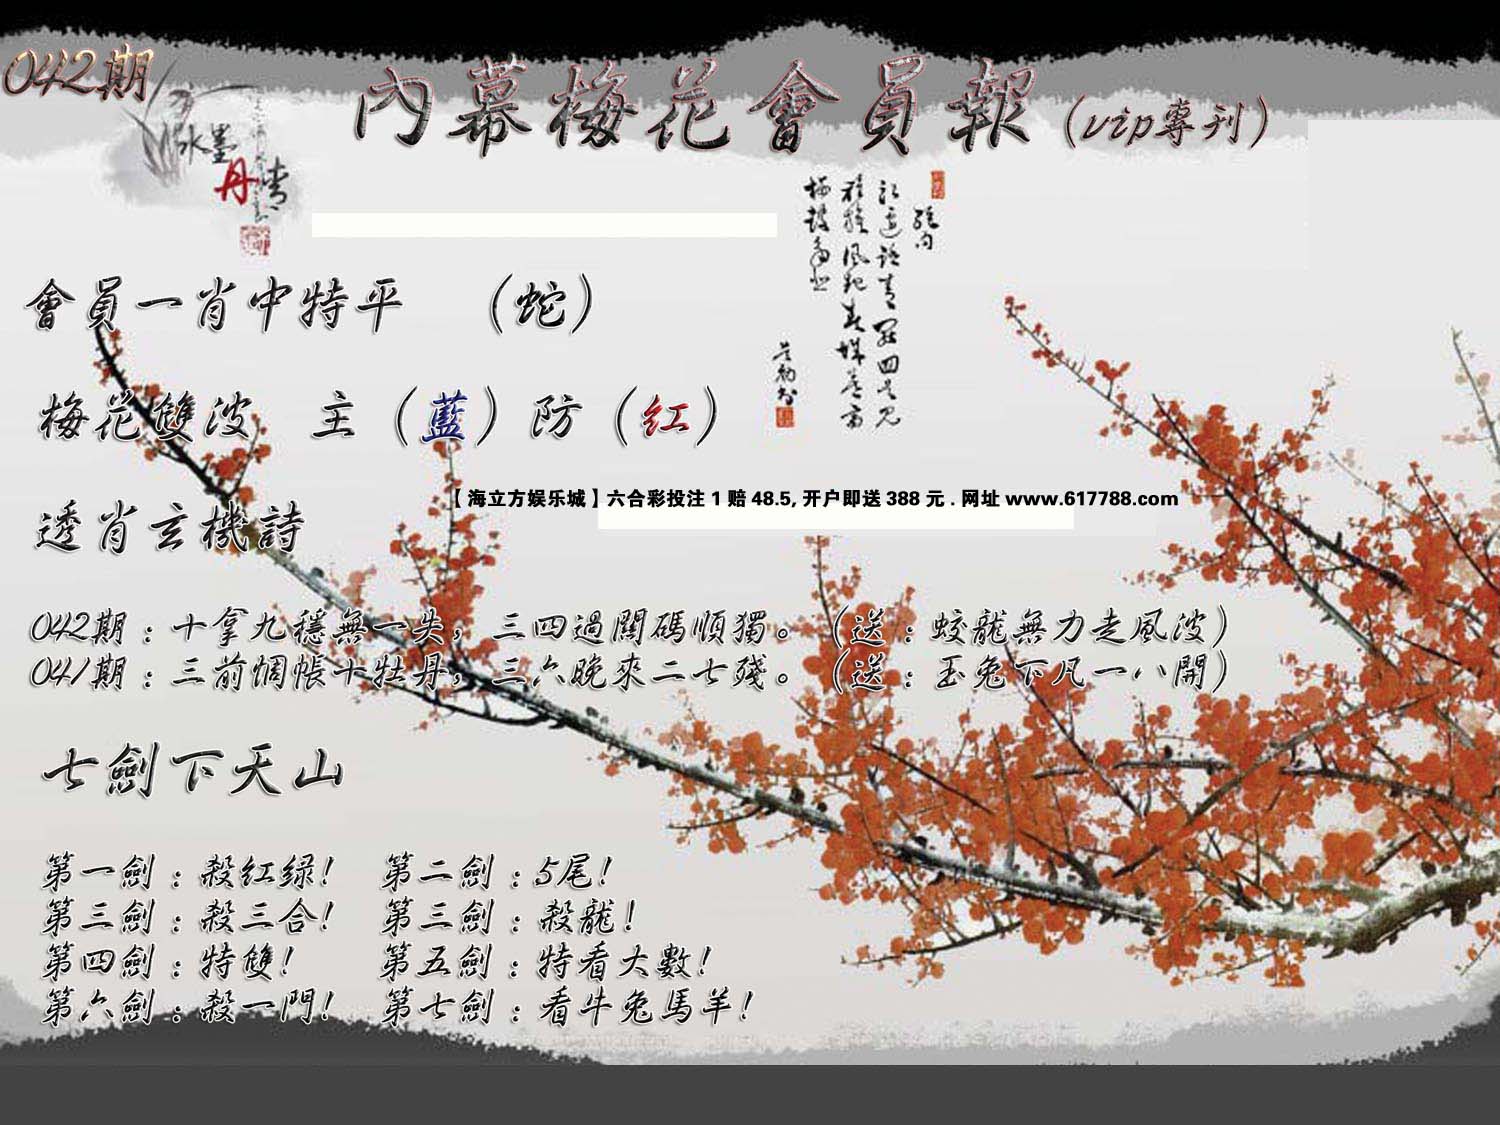 042期
內幕梅花會員報（vip專刊）
水墨
丹青
會員一肖中特平 （蛇）
梅花雙波 主（藍）防（红）
【海立方娱乐城】六合彩投注 1 赔 48.5, 开户即送 388 元 . 网址 www.617788.com
透肖玄機詩
042期：十拿九穩無一失，三四過關碼順獨。（送：蛟龍無力走風波）
041期：三前惆帳十牡丹，三六晚來二七殘。（送：玉兔下凡一八開）
七劍下天山
第一劍：殺红绿! 第二劍：5尾!
第三劍：殺三合! 第三劍：殺龍!
第四劍：特雙! 第五劍：特看大數!
第六劍：殺一門! 第七劍：看牛兔馬羊!